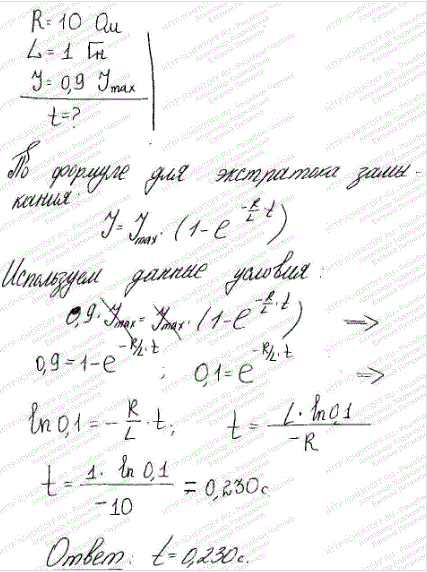 R = 10 Ом
L = 1 Гн
J = 0,9 Jmax
t = ?
По формуле для экстратока замы-
кания:
J = Jmax · (1 - e^(-R/L · t))
Используем данные условия:
0,9 · Jmax = Jmax · (1 - e^(-R/L · t)) =>
0,9 = 1 - e^(-R/L · t) ; 0,1 = e^(-R/L · t) =>
ln 0,1 = - R/L · t; t = L · ln 0,1 / -R
t = 1 · ln 0,1 / -10 = 0,230 с
Ответ: t = 0,230 с.